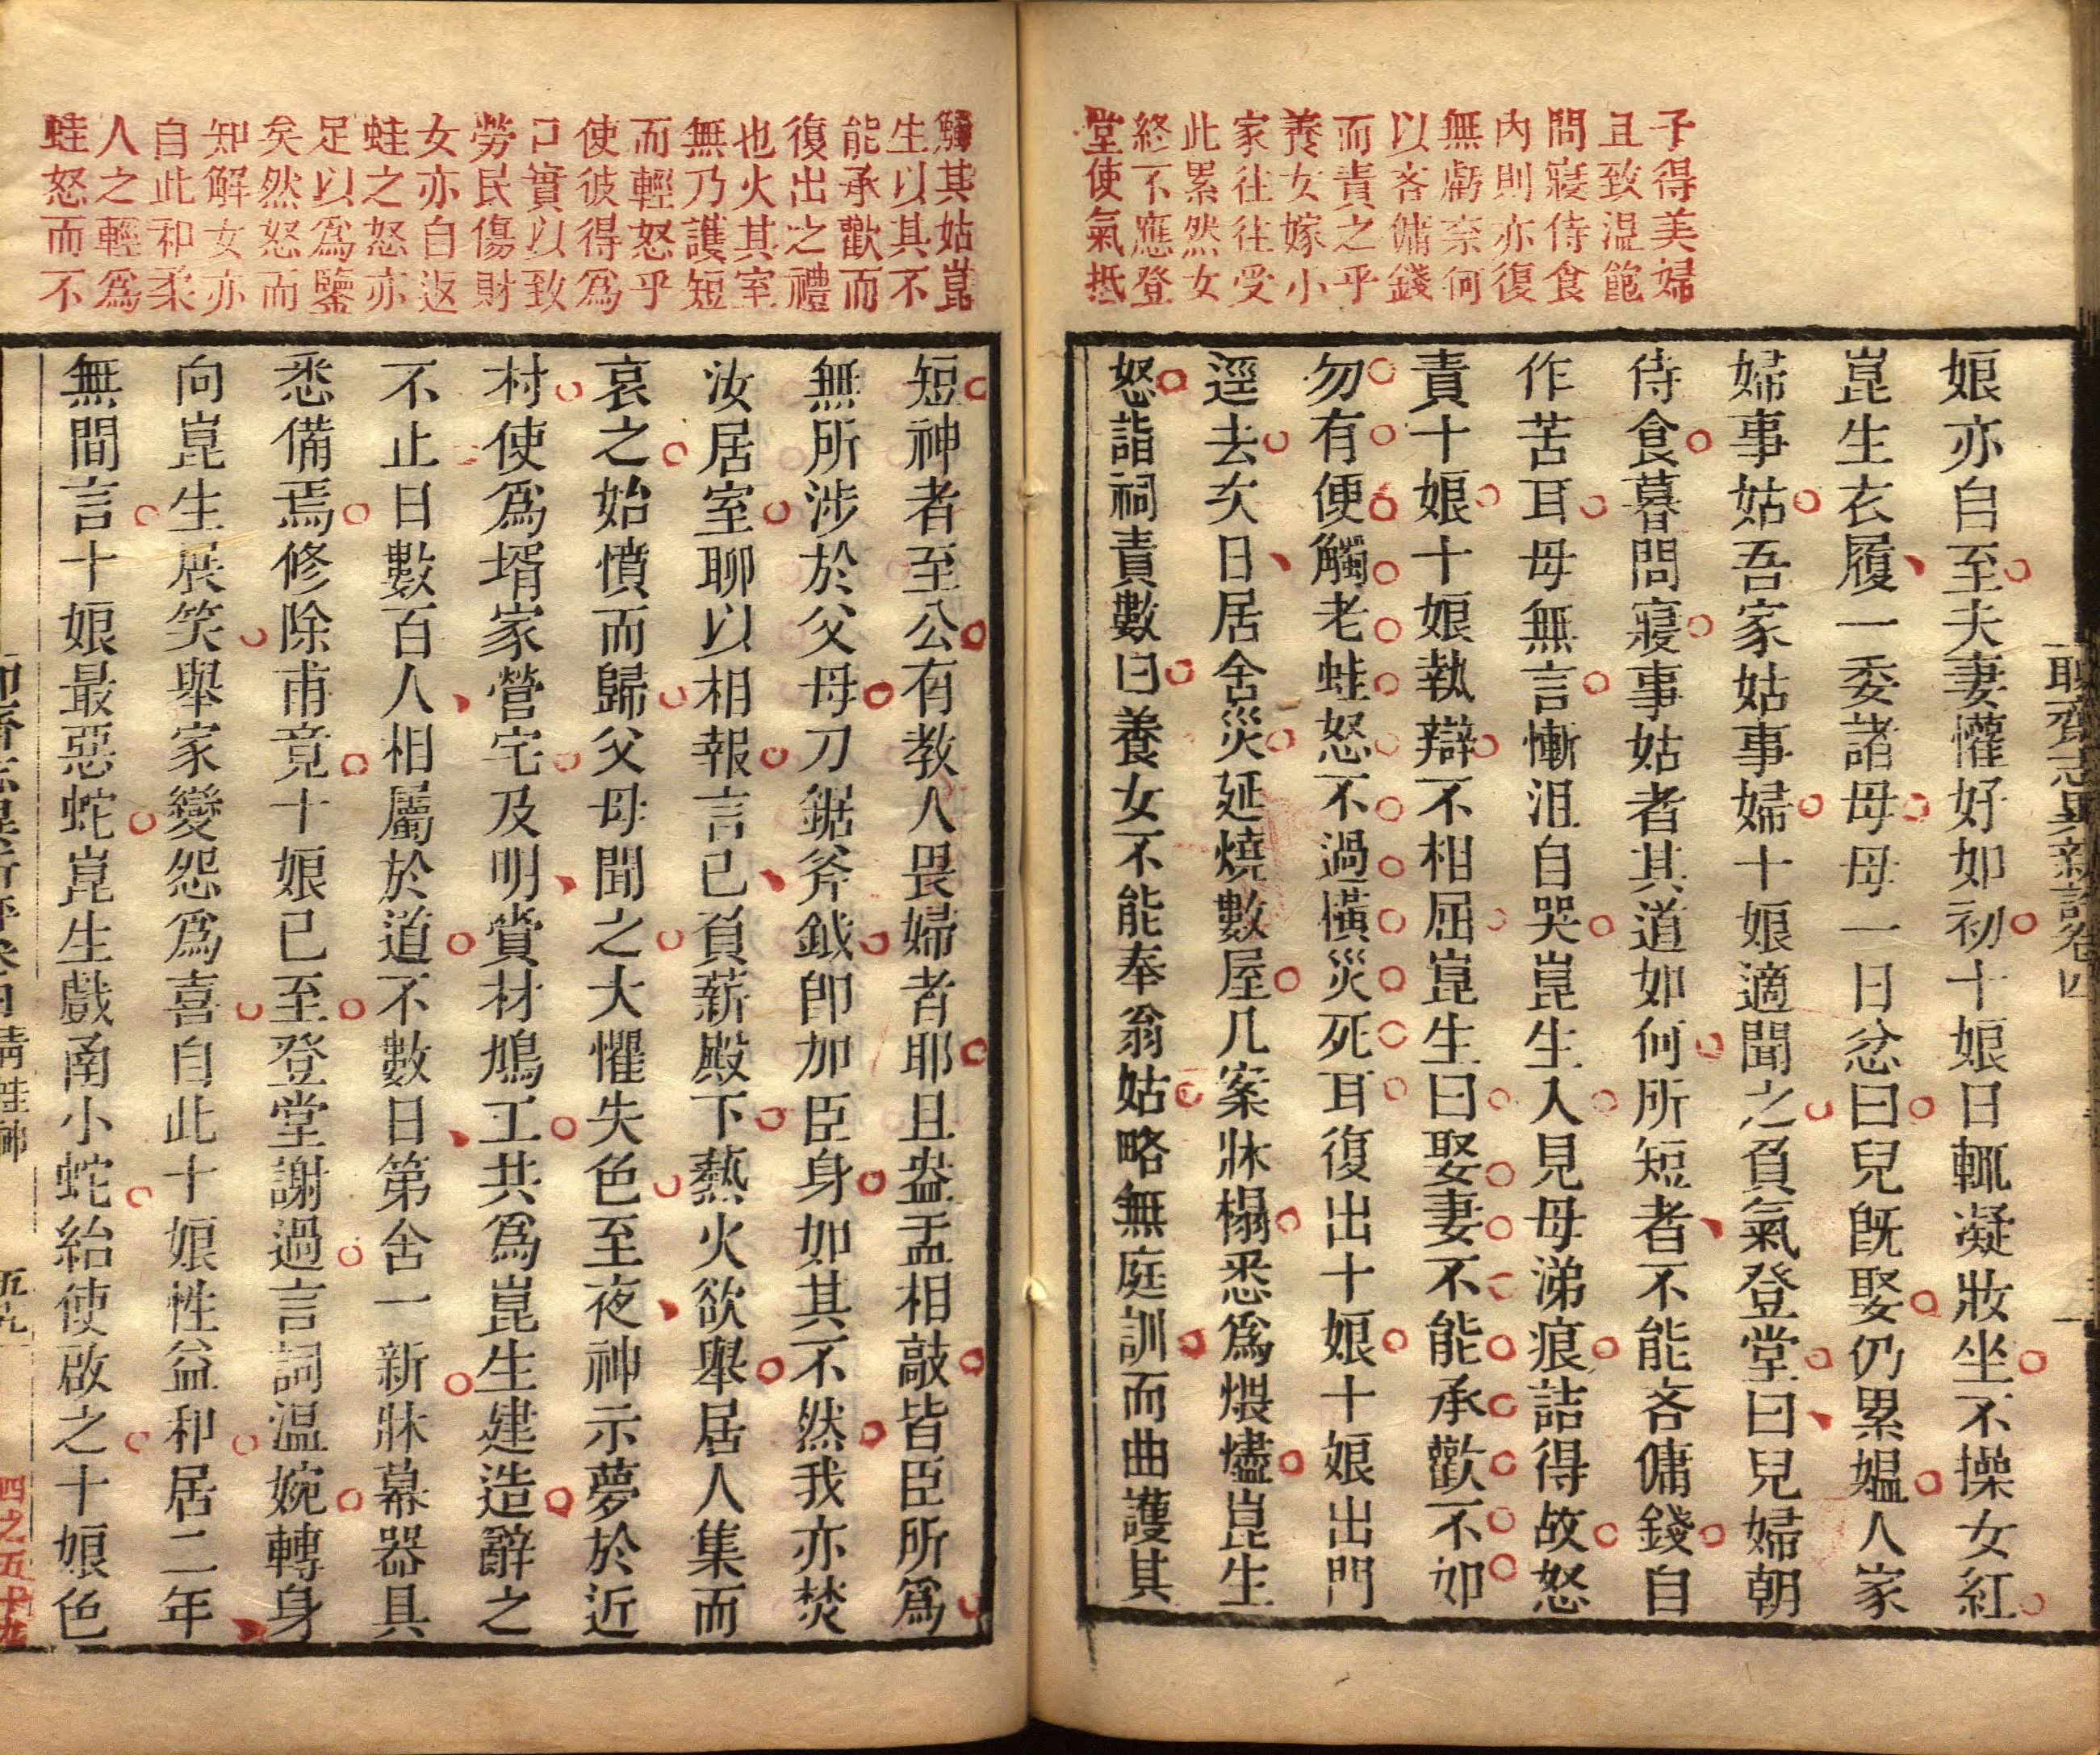 子得美婦
且致温飽
問寢侍食
内則亦復
無虧奈何
以吝傭錢
而責之乎
養女嫁小
家往往受
此累然女
終不應登
堂使氣抵
聊齋志異新評卷四
娘亦自至夫妻懽好如初十娘日輒凝妝坐不操女紅
崑生衣履一委諸母母一日忿曰兒旣娶仍累媼人家
婦事姑吾家姑事婦十娘適聞之負氣登堂曰兒婦朝
侍食暮問寢事姑者其道如何所短者不能吝傭錢自
作苦耳母無言慚沮自哭崑生入見母涕痕詰得故怒
責十娘十娘執辯不相屈崑生曰娶妻不能承歡不如
勿有便觸老蛙怒不過橫災死耳復出十娘十娘出門
逕去次日居舍災延燒數屋几案牀榻悉爲煨燼崑生
怒詣祠責數曰養女不能奉翁姑略無庭訓而曲護其
觸其姑崑
生以其不
能承歡而
復出之禮
也火其室
無乃護短
而輕怒乎
使彼得爲
口實以致
勞民傷財
女亦自返
蛙之怒亦
足以爲鑒
矣然怒而
知解女亦
自此和柔
人之輕爲
蛙怒而不
短神者至公有教人畏婦者耶且盎盂相敲皆臣所爲
無所涉於父母刀鋸斧鉞卽加臣身如其不然我亦焚
汝居室聊以相報言已負薪殿下爇火欲舉居人集而
哀之始憤而歸父母聞之大懼失色至夜神示夢於近
村使爲壻家營宅及明賫材鳩工共爲崑生建造辭之
不止日數百人相屬於道不數日第舍一新牀幕器具
悉備焉修除甫竟十娘已至登堂謝過言詞温婉轉身
向崑生展笑舉家變怨爲喜自此十娘性益和居二年
無間言十娘最惡蛇崑生戲函小蛇紿使啟之十娘色
青蛙神
五九
四之五十九